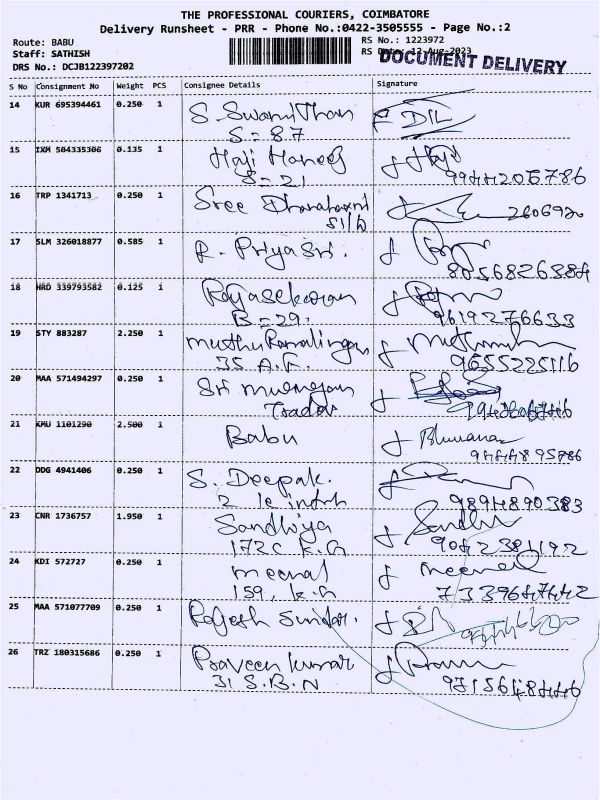 THE PROFESSIONAL COURIERS, COIMBATORE
Delivery Runsheet - PRR - Phone No.:0422-3505555 - Page No.:2
Route: BABU RS No.: 1223972
Staff: SATHISH RS Date: 12-Aug-2023
DOCUMENT DELIVERY
DRS No.: DCJB122397202
S No Consignment No Weight PCS Consignee Details Signature
14 KUR 695394461 0.250 1 S. Swamithan
S=87
15 IXM 504335306 0.135 1 Haji Haneef Haji
S=21 9944206786
16 TRP 1341713 0.250 1 Sree 2606920
Silk
17 SLM 326018877 0.585 1 R. Priya Sri.
8056826384
18 HRD 339793582 0.125 1 Rajasekaran
B=29. 9619276633
19 STY 883287 2.250 1 Muthu Ramalingam
35 A.F. 9655225116
20 MAA 571494297 0.250 1 Sri Murugan
Trader
21 KMU 1101290 2.500 1 Babu Bhuvana
9444895786
22 DDG 4941406 0.250 1 S. Deepak.
2 9894890383
23 CNR 1736757 1.950 1 Sandhiya Sandhi
172C K.G 9042381192
24 KDI 572727 0.250 1 meenal meenal
159, K.G 7339647442
25 MAA 571077709 0.250 1 Rajesh Sundar.
26 TRZ 180315686 0.250 1 Praveen Kumar
31 S.B.N 9715648446